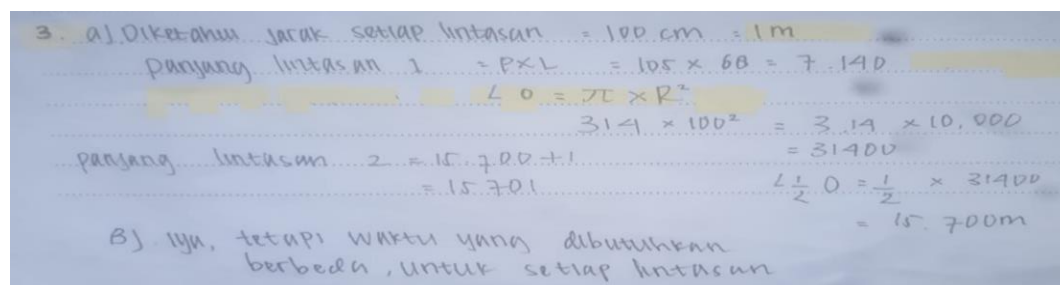 3. a). Diketahui jarak setiap lintasan = 100 cm = 1 m
panjang lintasan 1 = P×L = 105 × 68 = 7.140
L O = π × R²
314 × 100² = 3.14 × 10,000
= 31400
panjang lintasan 2 = 15.700 + 1
= 15.701
L ½ O = ½ × 31400
= 15.700m
B). Iya, tetapi waktu yang dibutuhkan
berbeda, untuk setiap lintasan